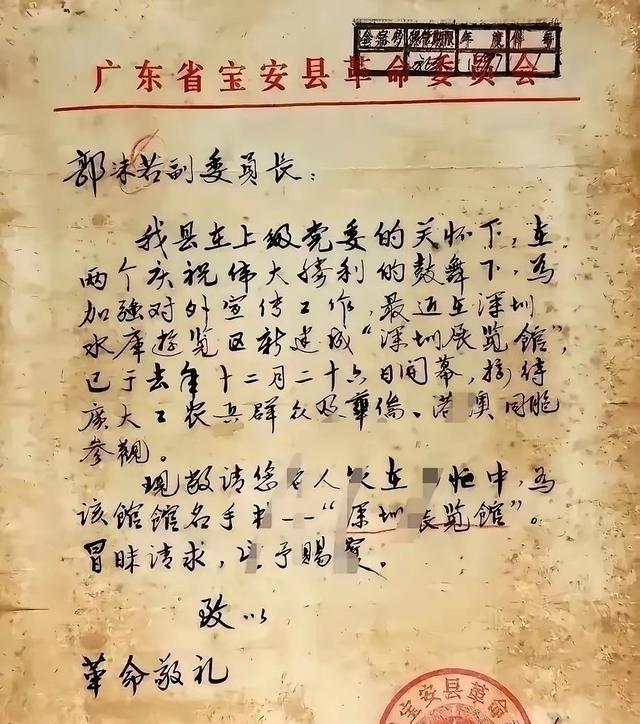 全宗号 保管期限 年度 件号
永久 1977 1
广东省宝安县革命委员会
郭沫若副委员长：
我县在上级党委的关怀下，在
两个庆祝伟大勝利的鼓舞下，為
加強对外宣传工作，最近在深圳
水库遊览区新建成“深圳展览館”，
已于去年十二月二十六日开幕，接待
廣大工农兵群众及華僑、港澳同胞
参观。
现敬请您在中，為
该館館名手书--“深圳展览館”。
冒昧请求，予赐
致以
革命敬礼
宝安县革命